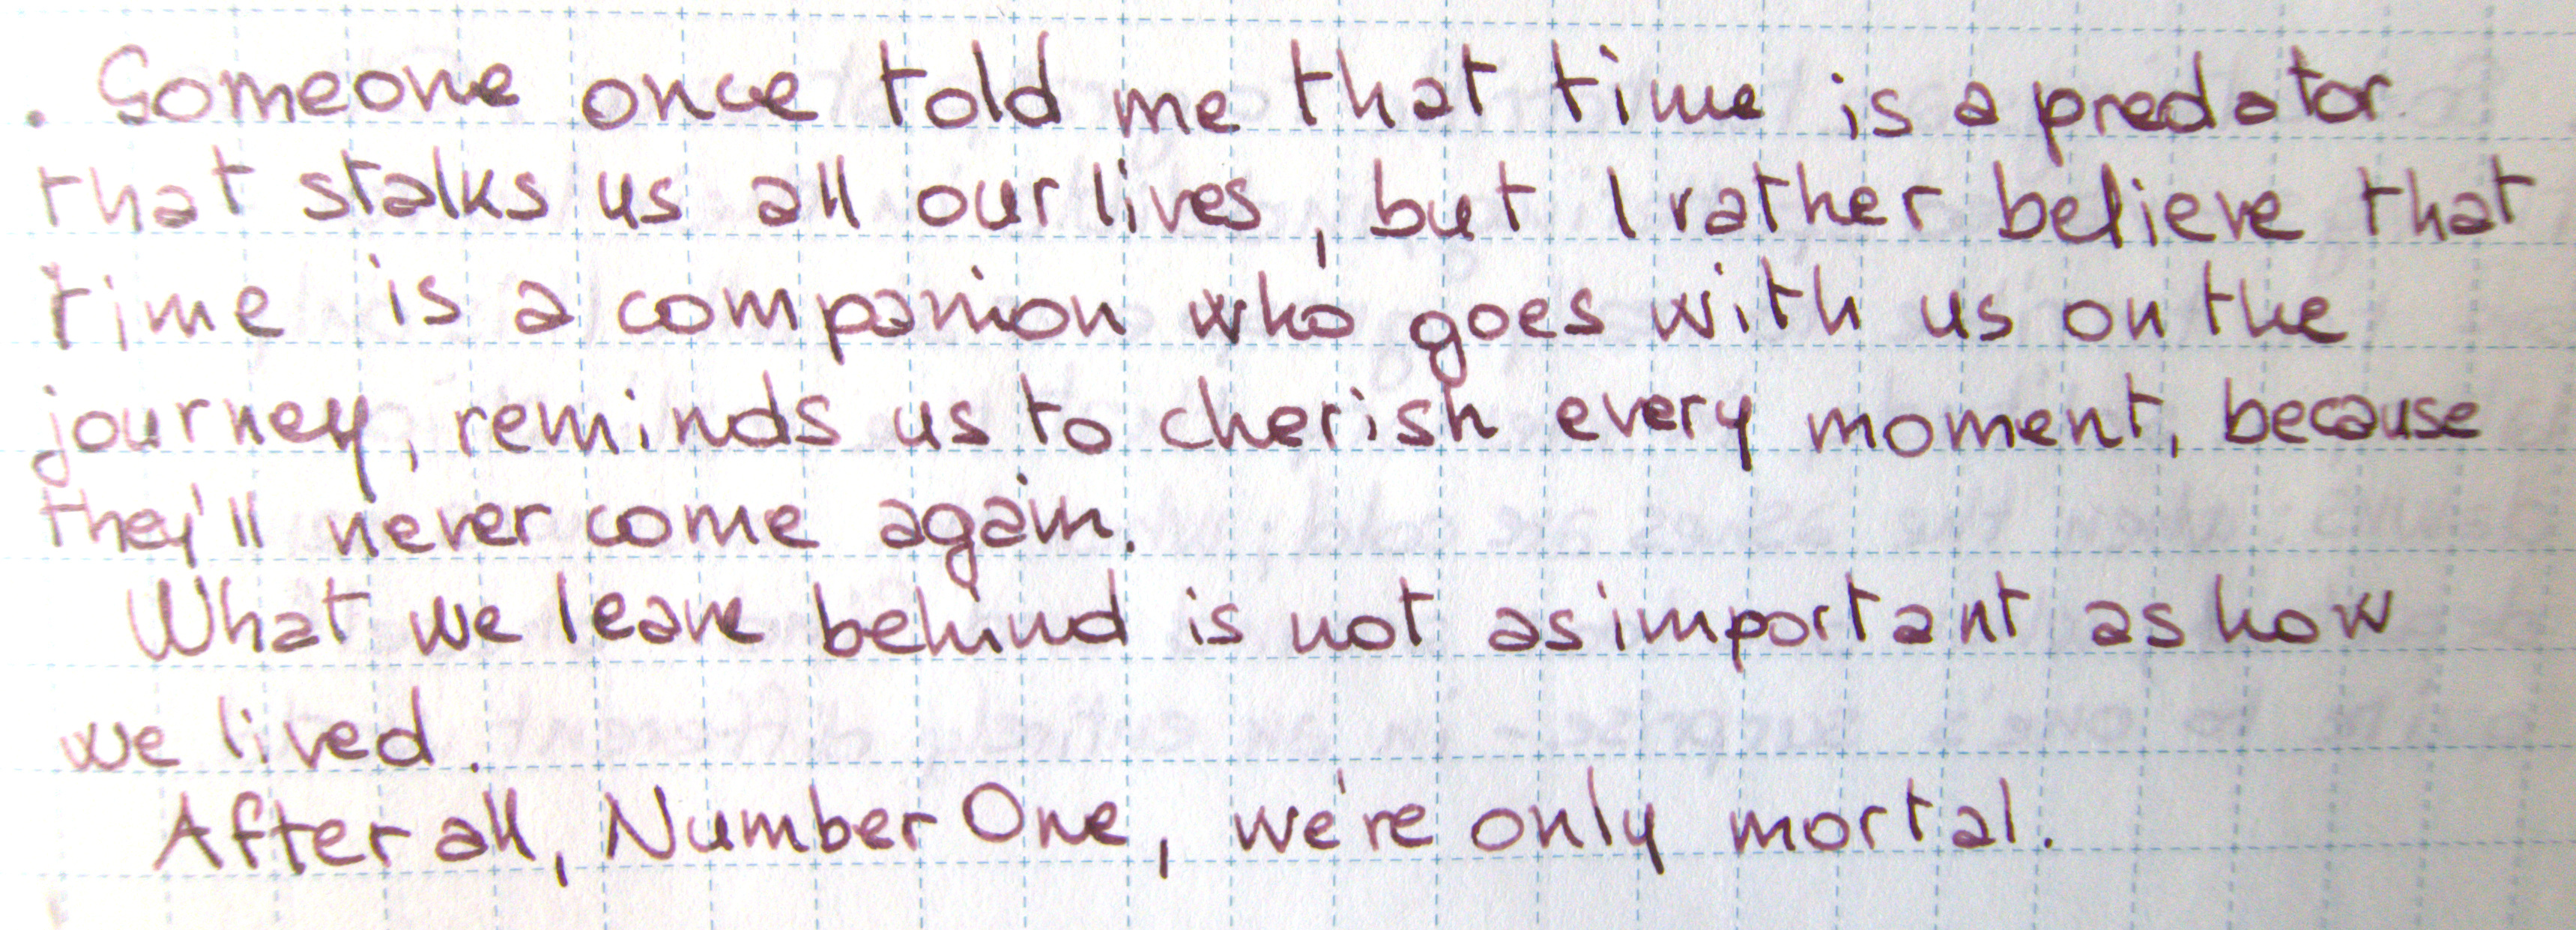 . Someone once told me that time is a predator
that stalks us all our lives, but I rather believe that
time is a companion who goes with us on the
journey, reminds us to cherish every moment, because
they'll never come again.
What we leave behind is not as important as how
we lived.
After all, Number One, we're only mortal.